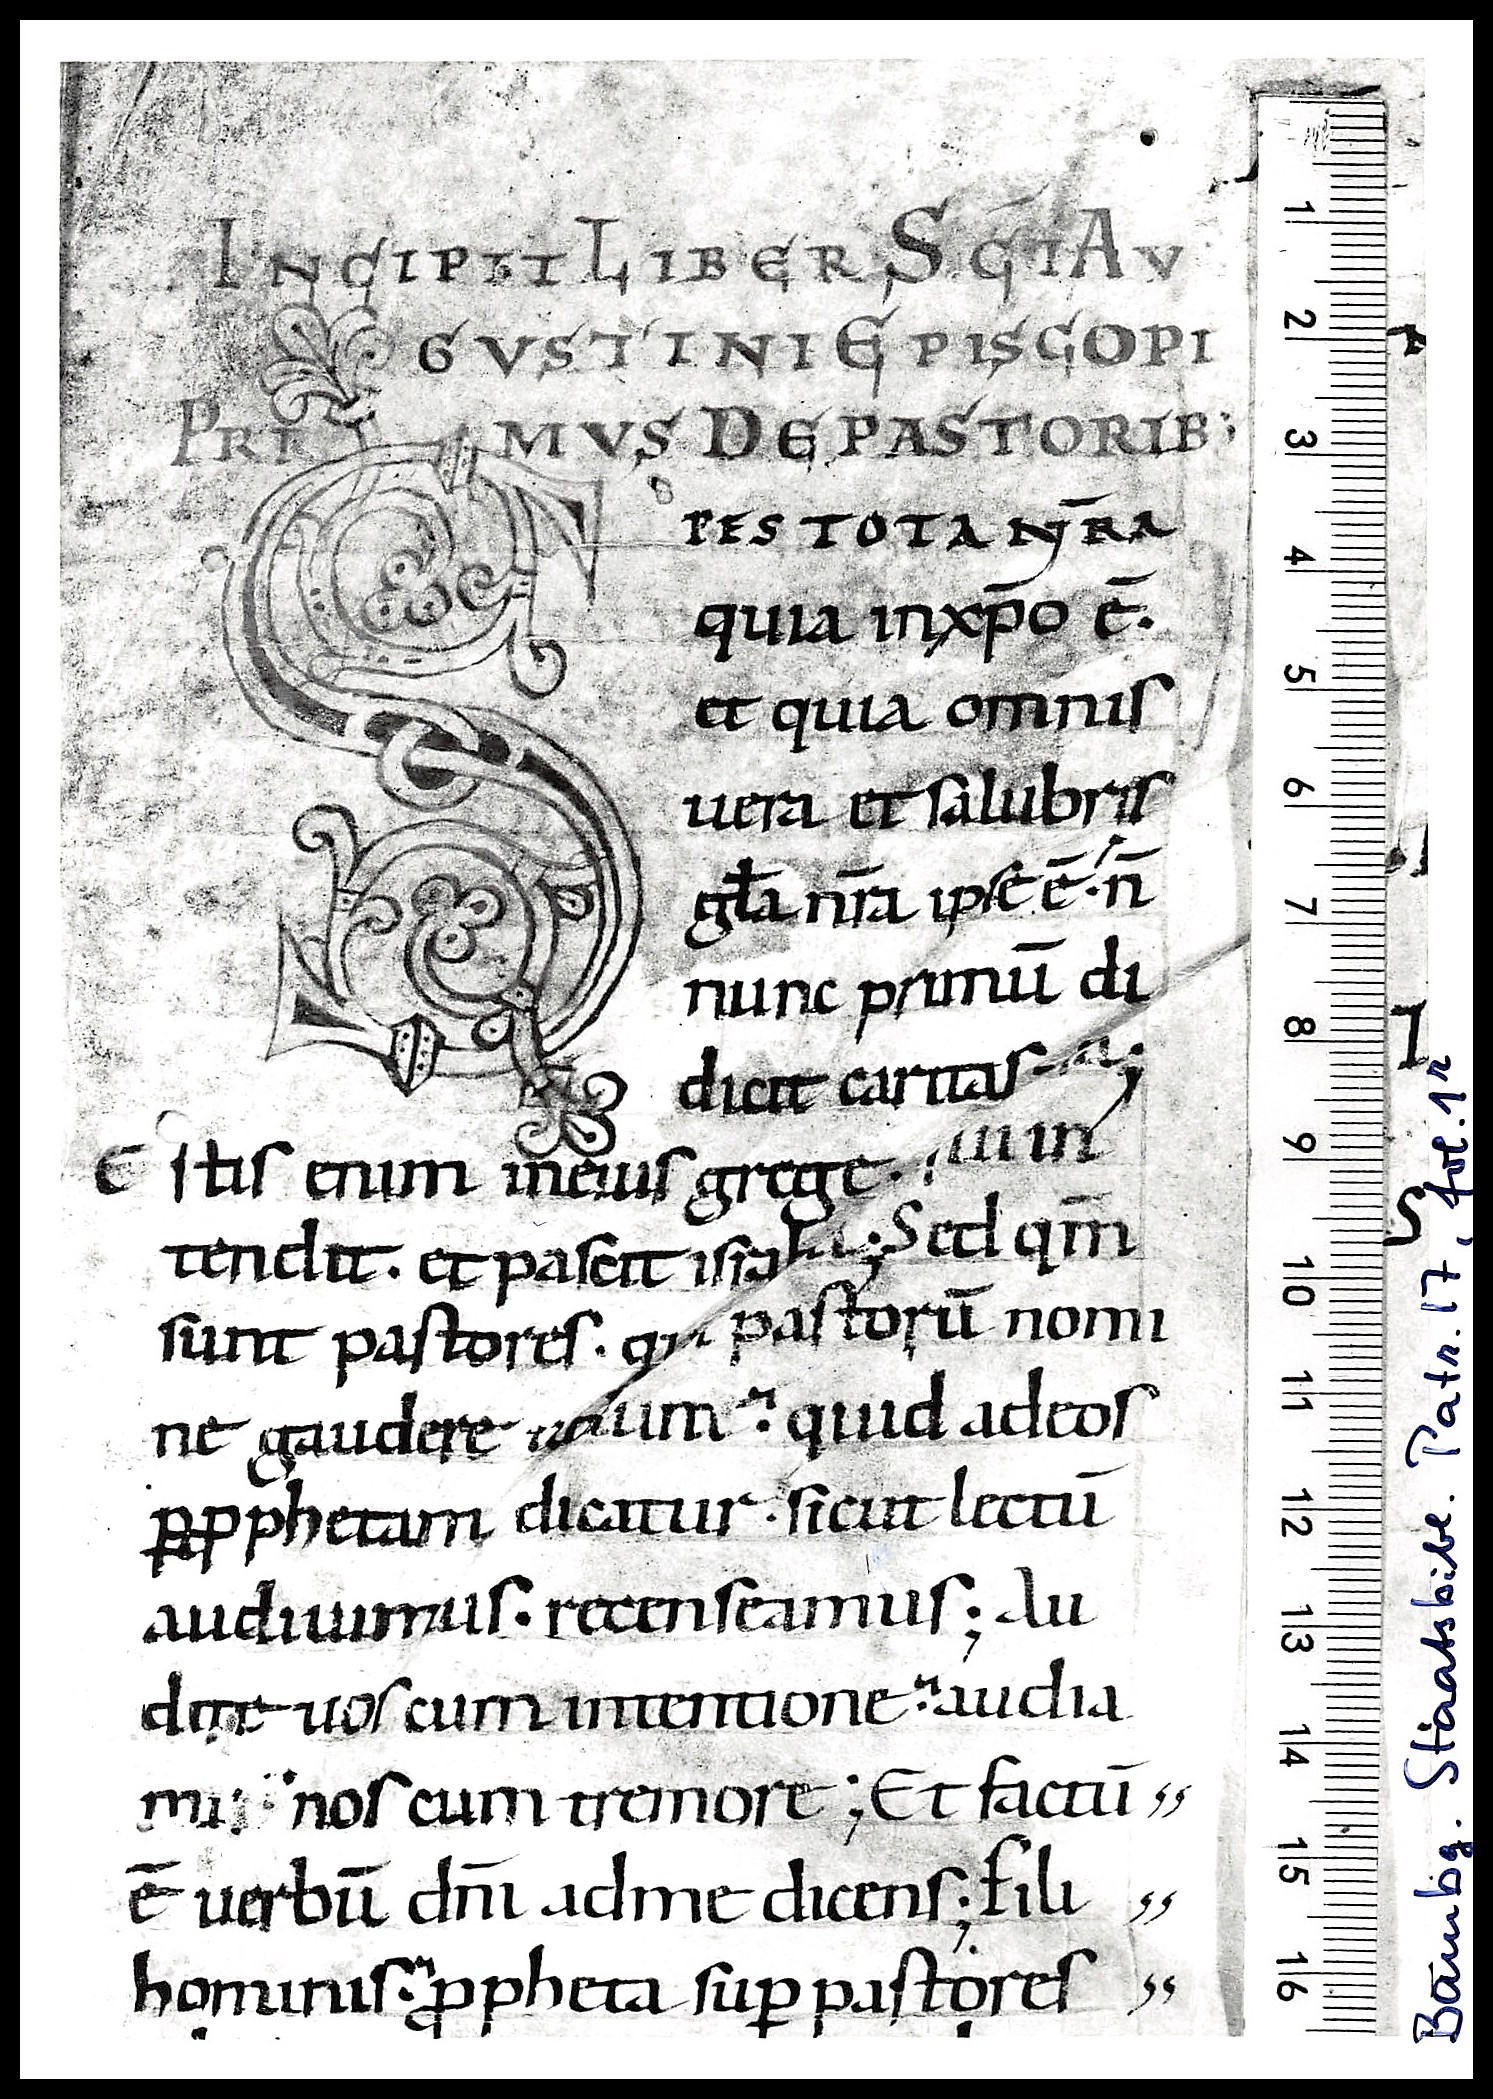 INCIPIT LIBER SC̄I AV
GVSTINI EPISCOPI
PRI MVS DE PASTORIB;
PES TOTA NR̄A
quia inxp̄o ē.
et quia omnis
uera et salubris
gła nr̄a ipse ē. n̄
nunc primū di
dicit caritas
Estis enim ineius grege. in
tendit. et pascit ; Sed qm̄
sunt pastores. qui pastorū nomi
ne gaudere um quid adeos
ꝑꝓphetam dicatur. sicut lectū
audiuimus. recenseamus; Au
dite uos cum intentione. audia
nos cum tremore; Et factū ,,
ē uerbū dn̄i adme dicens; fili ,,
hominis. ꝓpheta suꝑ pastores ,,
1
2
3
4
5
6
7
8
9
10
11
12
13
14
15
16
Bambg. Staatsbibl. Patr. 17, fol. 1r